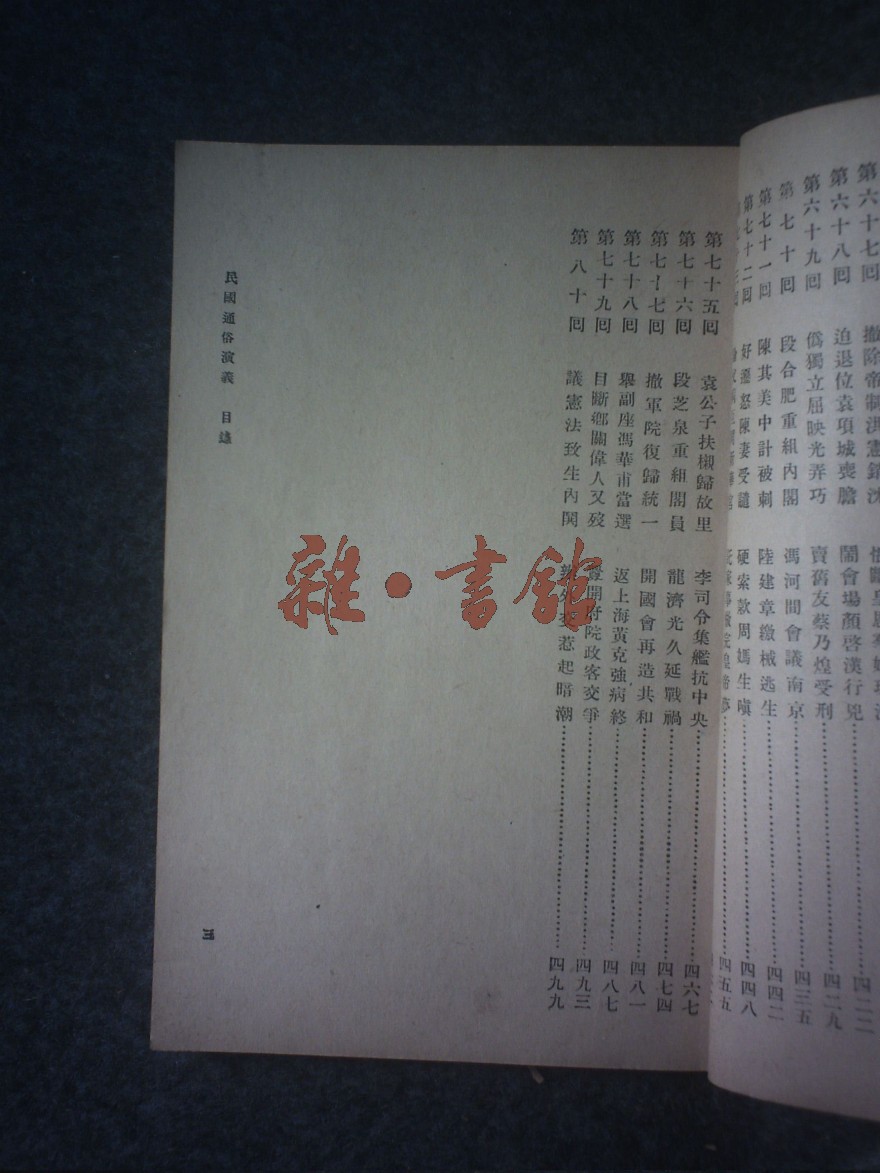 第六十八回 迫退位袁項城喪膽 鬧會場顏啓漢行兇 四二九
第六十九回 僞獨立屈映光弄巧 賣舊友蔡乃煌受刑 四三五
第七十回 段合肥重組內閣 馮河間會議南京 四四二
第七十一回 陳其美中計被刺 陸建章繳械逃生 四四八
第七十二回 好遷怒陳妻受譴 硬索款周媽生嗔 四五五
第七十五回 袁公子扶櫬歸故里 李司令集艦抗中央 四六七
第七十六回 段芝泉重組閣員 龍濟光久延戰禍 四七四
第七十七回 撤軍院復歸統一 開國會再造共和 四八一
第七十八回 舉副座馮華甫當選 返上海黃克強病終 四八七
第七十九回 目斷鄉關偉人又歿 釁開府院政客交爭 四九三
第八十回 議憲法致生內鬨 惹起暗潮 四九九
民國通俗演義 目錄
三
雜·書館